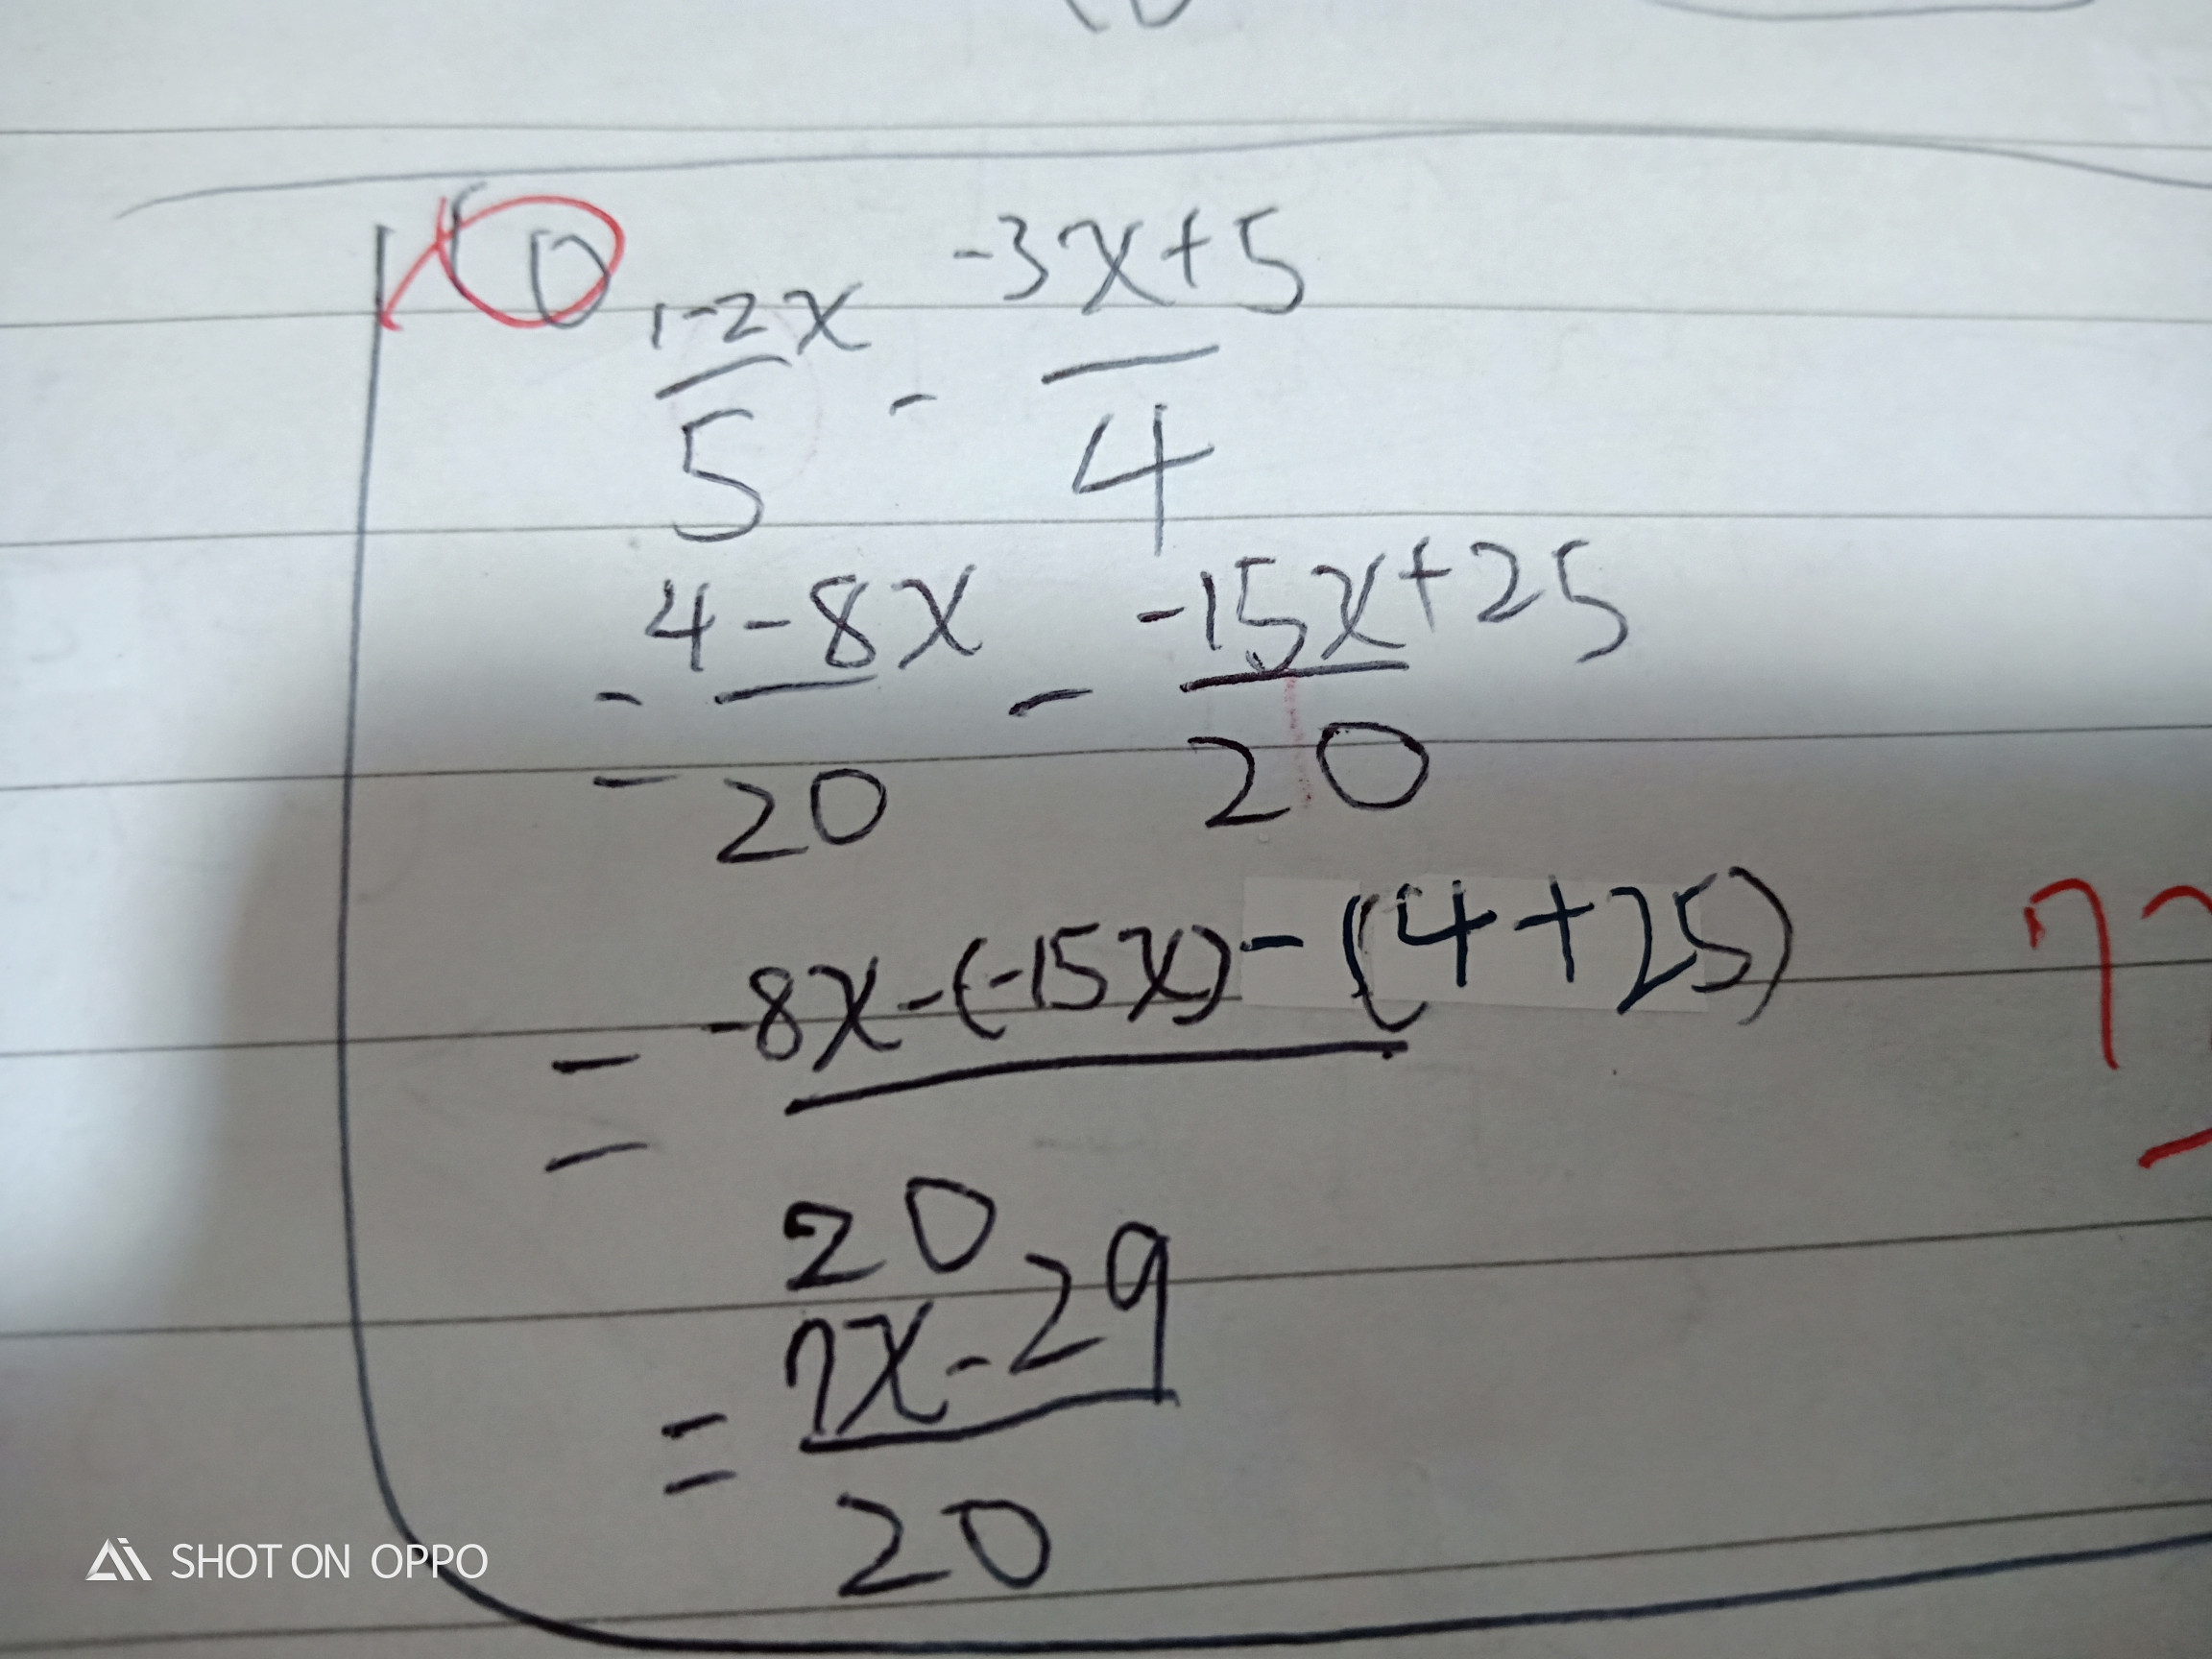 10
1-2x/5 - -3x+5/4
= 4-8x/20 - -15x+25/20
= -8x-(-15x)-(4+25)/20
= 7x-29/20
SHOT ON OPPO